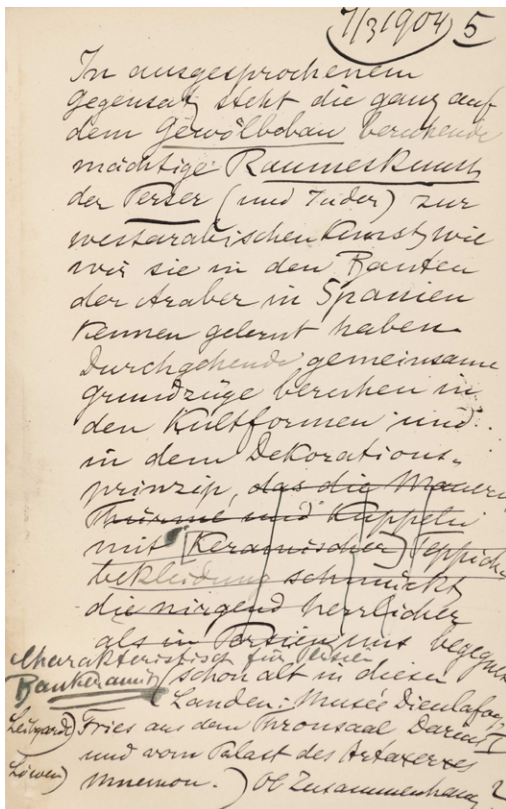 7/3 1904) 5
In ausgesprochenem
Gegensatz steht die ganz auf
dem Gewölbebau beruhende
mächtige Raumeskunst
der Perser (und Inder) zur
westarabischen Kunst, wie
wir sie in den Bauten
der Araber in Spanien
kennen gelernt haben.
Durchgehende gemeinsame
Grundzüge beruhen in
den Kultformen und
in dem Dekorations-
prinzip, das die Mauern
Thürme und Kuppeln
mit [Keramischer] Teppich
bekleidung schmückt,
die nirgend herrlicher
als in Persien uns begegnet
Charakteristisch für Perser
Baukeramik / schon alt in diesen
Landen: Musée Dieulafoy
Leibgarde) Fries aus dem Thronsaal Darius I
und vom Palast des Artaxerxes
Löwen) Mnemon.) Ob Zusammenhang?